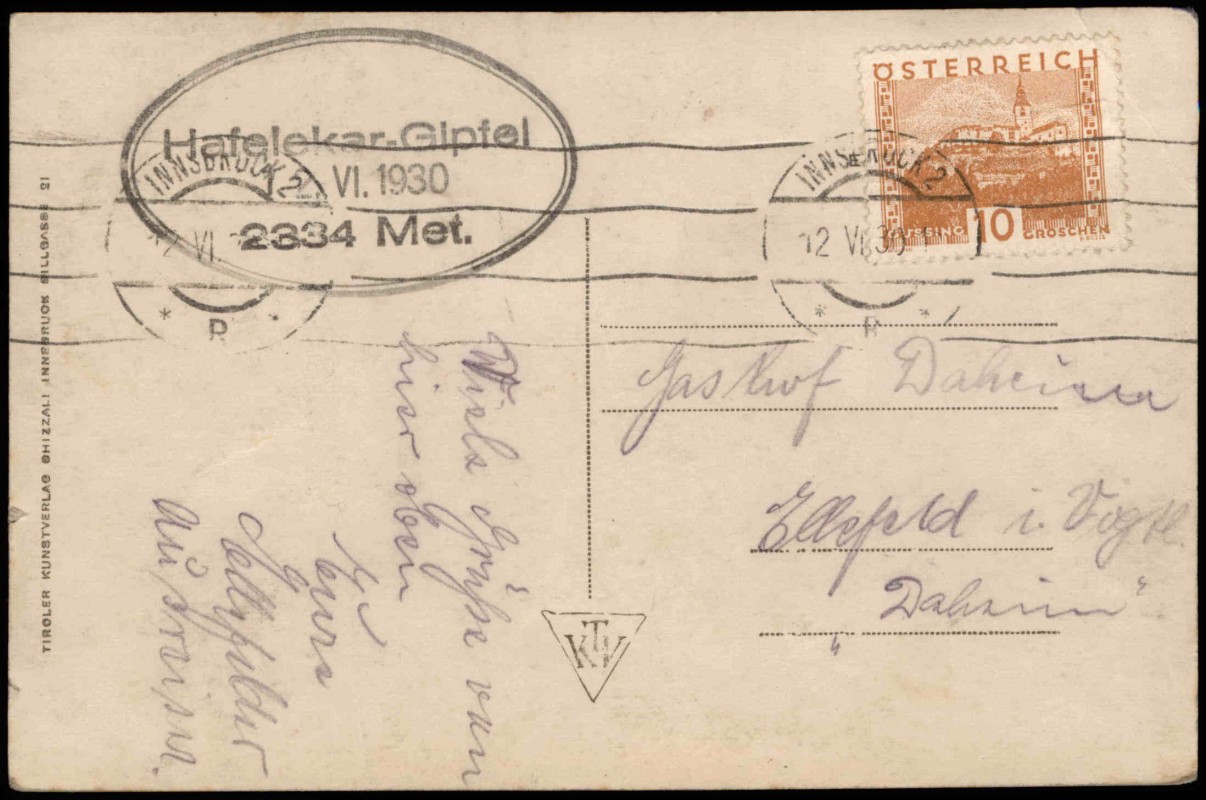 Hafelekar-Gipfel
12. VI. 1930
2334 Met.
INNSBRUCK 2
12 VI
* B *
INNSBRUCK 2
12 VI 30
* B *
ÖSTERREICH
GÜSSING 10 GROSCHEN
TIROLER KUNSTVERLAG CHIZZALI INNSBRUCK SILLGASSE 21
Viele Grüße von
hier oben
Eure
Ellefelder
Ausreißer.
KTV
Gasthof Daheim
Ellefeld i. Vogtl.
„Daheim"